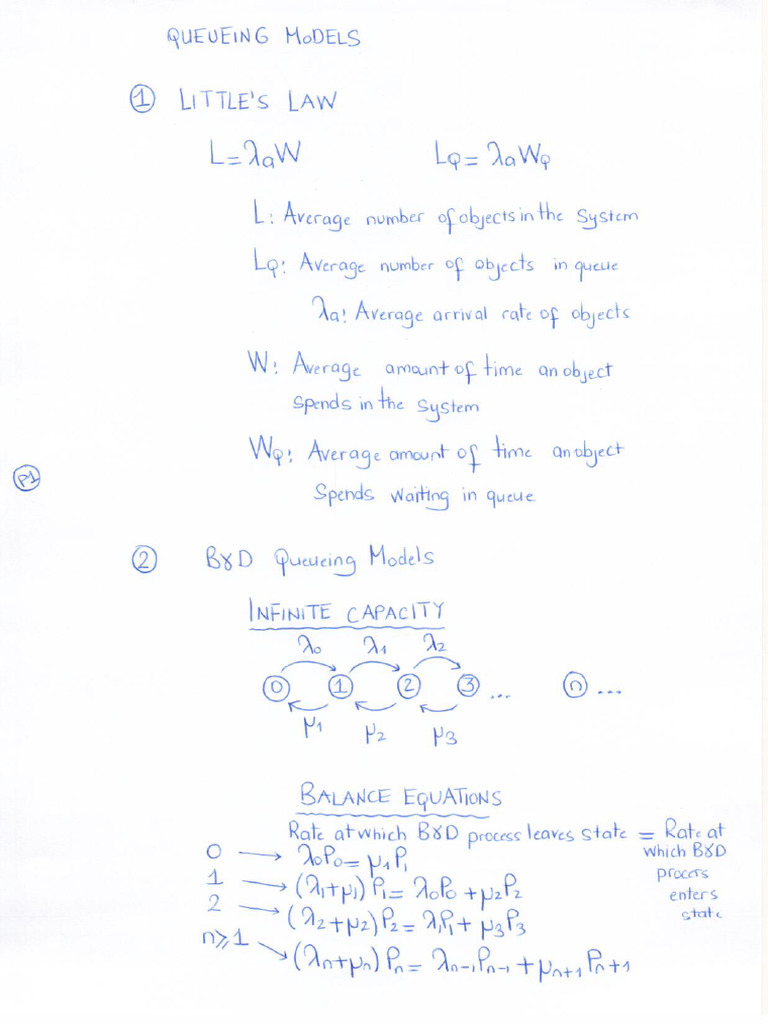 QUEUEING MODELS
① LITTLE'S LAW
L=λaW LQ=λaWQ
L: Average number of objects in the System
LQ: Average number of objects in queue
λa: Average arrival rate of objects
W: Average amount of time an object
spends in the system
WQ: Average amount of time an object
Spends waiting in queue
P1
② B&D Queueing Models
INFINITE CAPACITY
λ0 λ1 λ2
⓪ ① ② ③ ... ⓝ ...
μ1 μ2 μ3
BALANCE EQUATIONS
Rate at which B&D process leaves state = Rate at
which B&D
process
enters
state
0 → λ0P0=μ1P1
1 → (λ1+μ1)P1=λ0P0+μ2P2
2 → (λ2+μ2)P2=λ1P1+μ3P3
n≥1 → (λn+μn)Pn=λn-1Pn-1+μn+1Pn+1